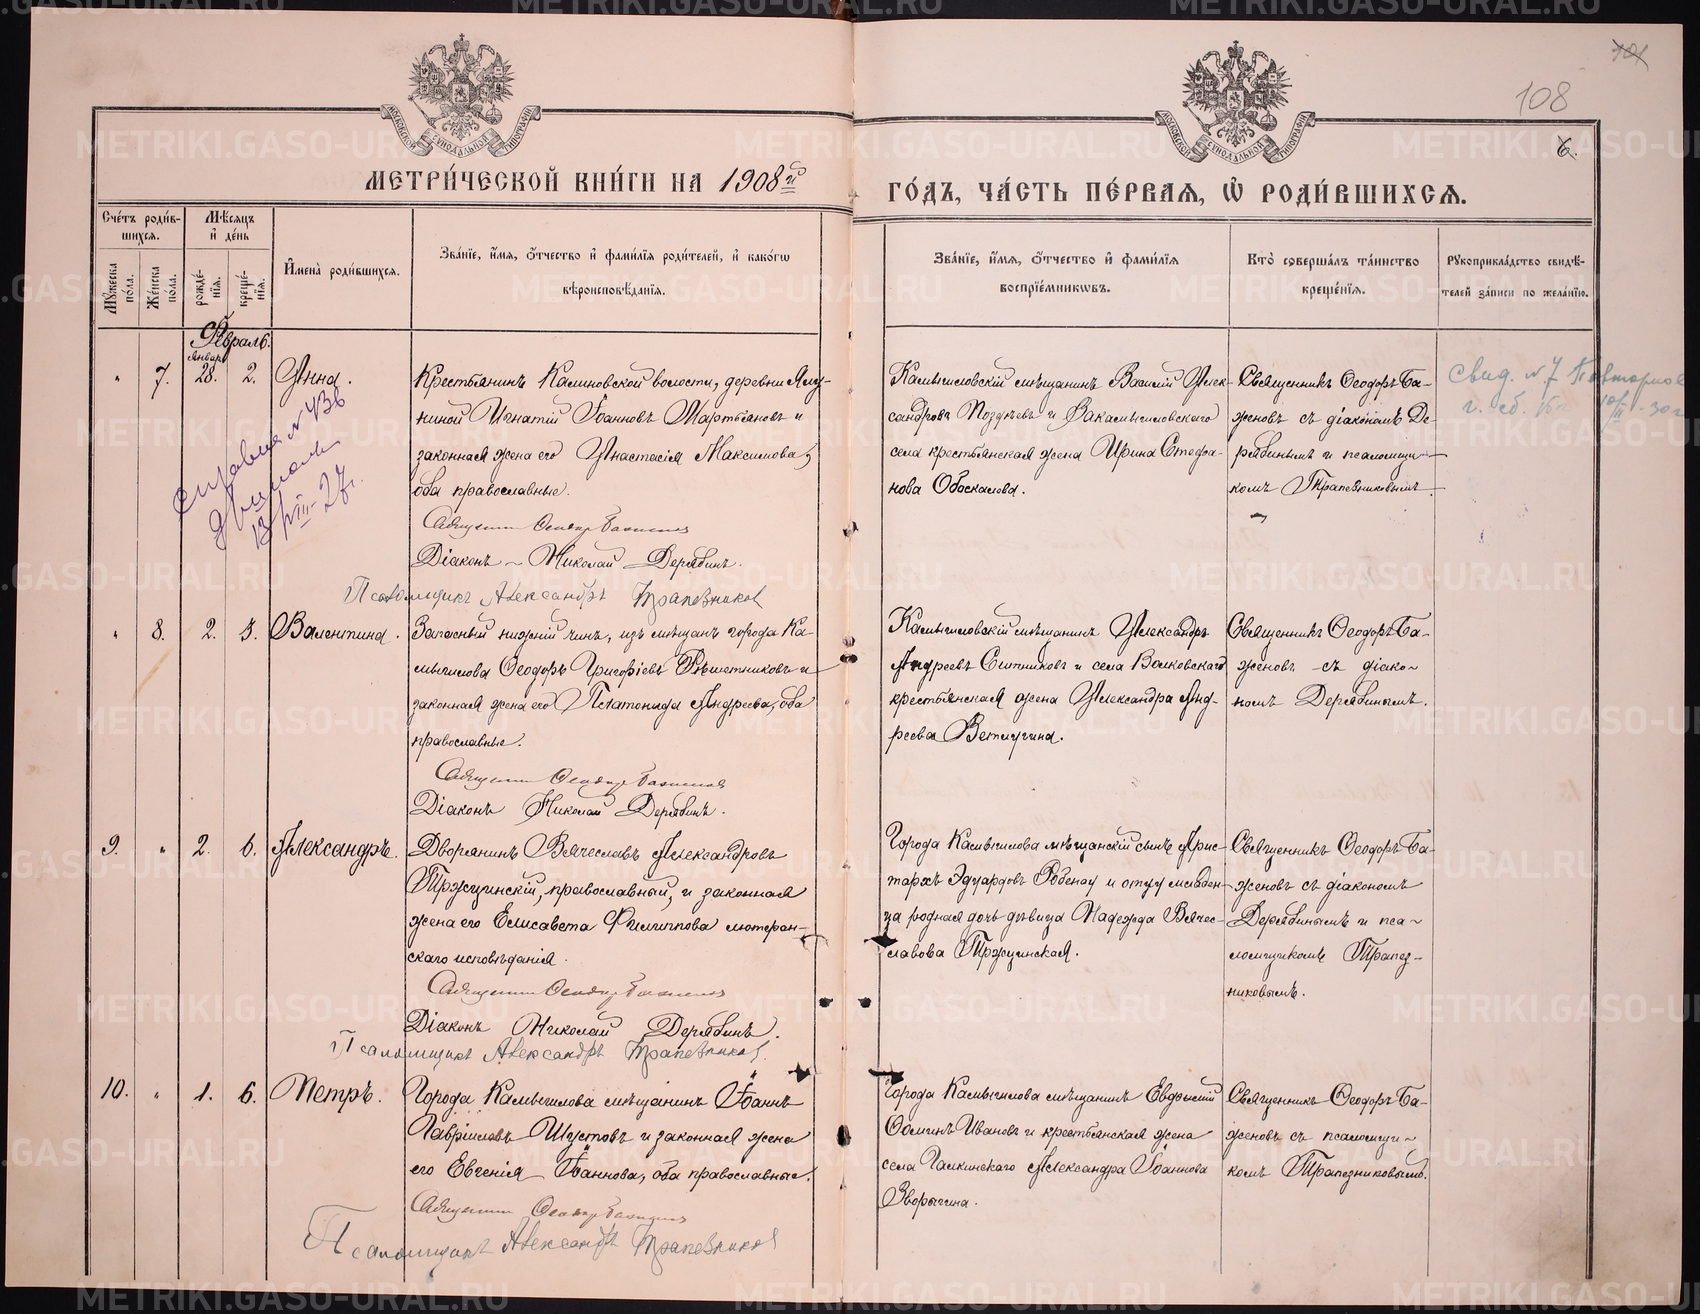 108
6.
МОСКОВСКОЙ СѴНОДАЛЬНОЙ ТИПОГРАФІИ
МОСКОВСКОЙ СѴНОДАЛЬНОЙ ТИПОГРАФІИ
МЕТРИ́ЧЕСКОЙ КНИ́ГИ НА 1908й
ГО́ДЪ, ЧА́СТЬ ПЕ́РВАЯ, Ѡ҆ РОДИ́ВШИХСЯ.
Сче́тъ роди́в-
шихся.
Мѣ́сяцъ
и҆ де́нь
Му́жеска по́ла.
Же́нска по́ла.
рожде́нїя.
креще́нїя.
И҆мена̀ роди́вшихся.
Зва́нїе, и҆́мя, ѻ҆́тчество и҆ фами́лїя роди́телей, и҆ како́гѡ
вѣроисповѣ́данїя.
Зва́нїе, и҆́мя, ѻ҆́тчество и҆ фами́лїя
воспрїе́мникѡвъ.
Кто̀ соверша́лъ та́инство
креще́нїя.
Рꙋкоприкла́дство свидѣ́-
телей за́писи по жела́нїю.
Февраль.
Января
" 7. 28. 2. Анна.
Крестьянинъ Калиновской волости, деревни Яку-
ниной Игнатій Іоанновъ Мартьяновъ и
законная жена его Анастасія Максимова,
оба православные.
Священникъ Ѳеодоръ Баженовъ
Діаконъ Николай Дерябинъ.
Псаломщикъ Александръ Трапезниковъ
Камышловскій мѣщанинъ Василій Алек-
сандровъ Позднѣевъ и Закамышловскаго
села крестьянская жена Ирина Стефа-
нова Обоскалова.
Священникъ Ѳеодоръ Ба-
женовъ съ діакономъ Де-
рябинымъ и псаломщи-
комъ Трапезниковымъ.
Свид. № 7 Повторное
справка №
13/VIII-27г.
" 8. 2. 3. Валентина.
Запасный нижній чинъ, изъ мѣщанъ города Ка-
мышлова Ѳеодоръ Григоріевъ Рѣшетниковъ и
законная жена его Платонида Андреева, оба
православные.
Священникъ Ѳеодоръ Баженовъ
Діаконъ Николай Дерябинъ.
Камышловскій мѣщанинъ Александръ
Андреевъ Ситниковъ и села Волковскаго
крестьянская жена Александра Анд-
реева Ветлугина.
Священникъ Ѳеодоръ Ба-
женовъ съ діако-
номъ Дерябинымъ.
9. " 2. 6. Александръ.
Дворянинъ Вячеславъ Александровъ
Тржцинскій, православный, и законная
жена его Елисавета Филиппова лютеран-
скаго исповѣданія.
Священникъ Ѳеодоръ Баженовъ
Діаконъ Николай Дерябинъ.
Псаломщикъ Александръ Трапезниковъ.
Города Камышлова мѣщанскій сынъ Арис-
тархъ Эдуардовъ Робенау и отцу младен-
ца родная дочь дѣвица Надежда Вячес-
лавова Тржцинская.
Священникъ Ѳеодоръ Ба-
женовъ съ діакономъ
Дерябинымъ и пса-
ломщикомъ Трапез-
никовымъ.
10. " 1. 6. Петръ.
Города Камышлова мѣщанинъ Іоаннъ
Гавріиловъ Шустовъ и законная жена
его Евгенія Іоаннова, оба православные.
Священникъ Ѳеодоръ Баженовъ
Псаломщикъ Александръ Трапезниковъ
Города Камышлова мѣщанинъ Евдокимъ
Ѳоминъ Ивановъ и крестьянская жена
села Галкинскаго Александра Іоаннова
Зворыгина.
Священникъ Ѳеодоръ Ба-
женовъ съ псаломщи-
комъ Трапезниковымъ.
METRIKI.GASO-URAL.RU